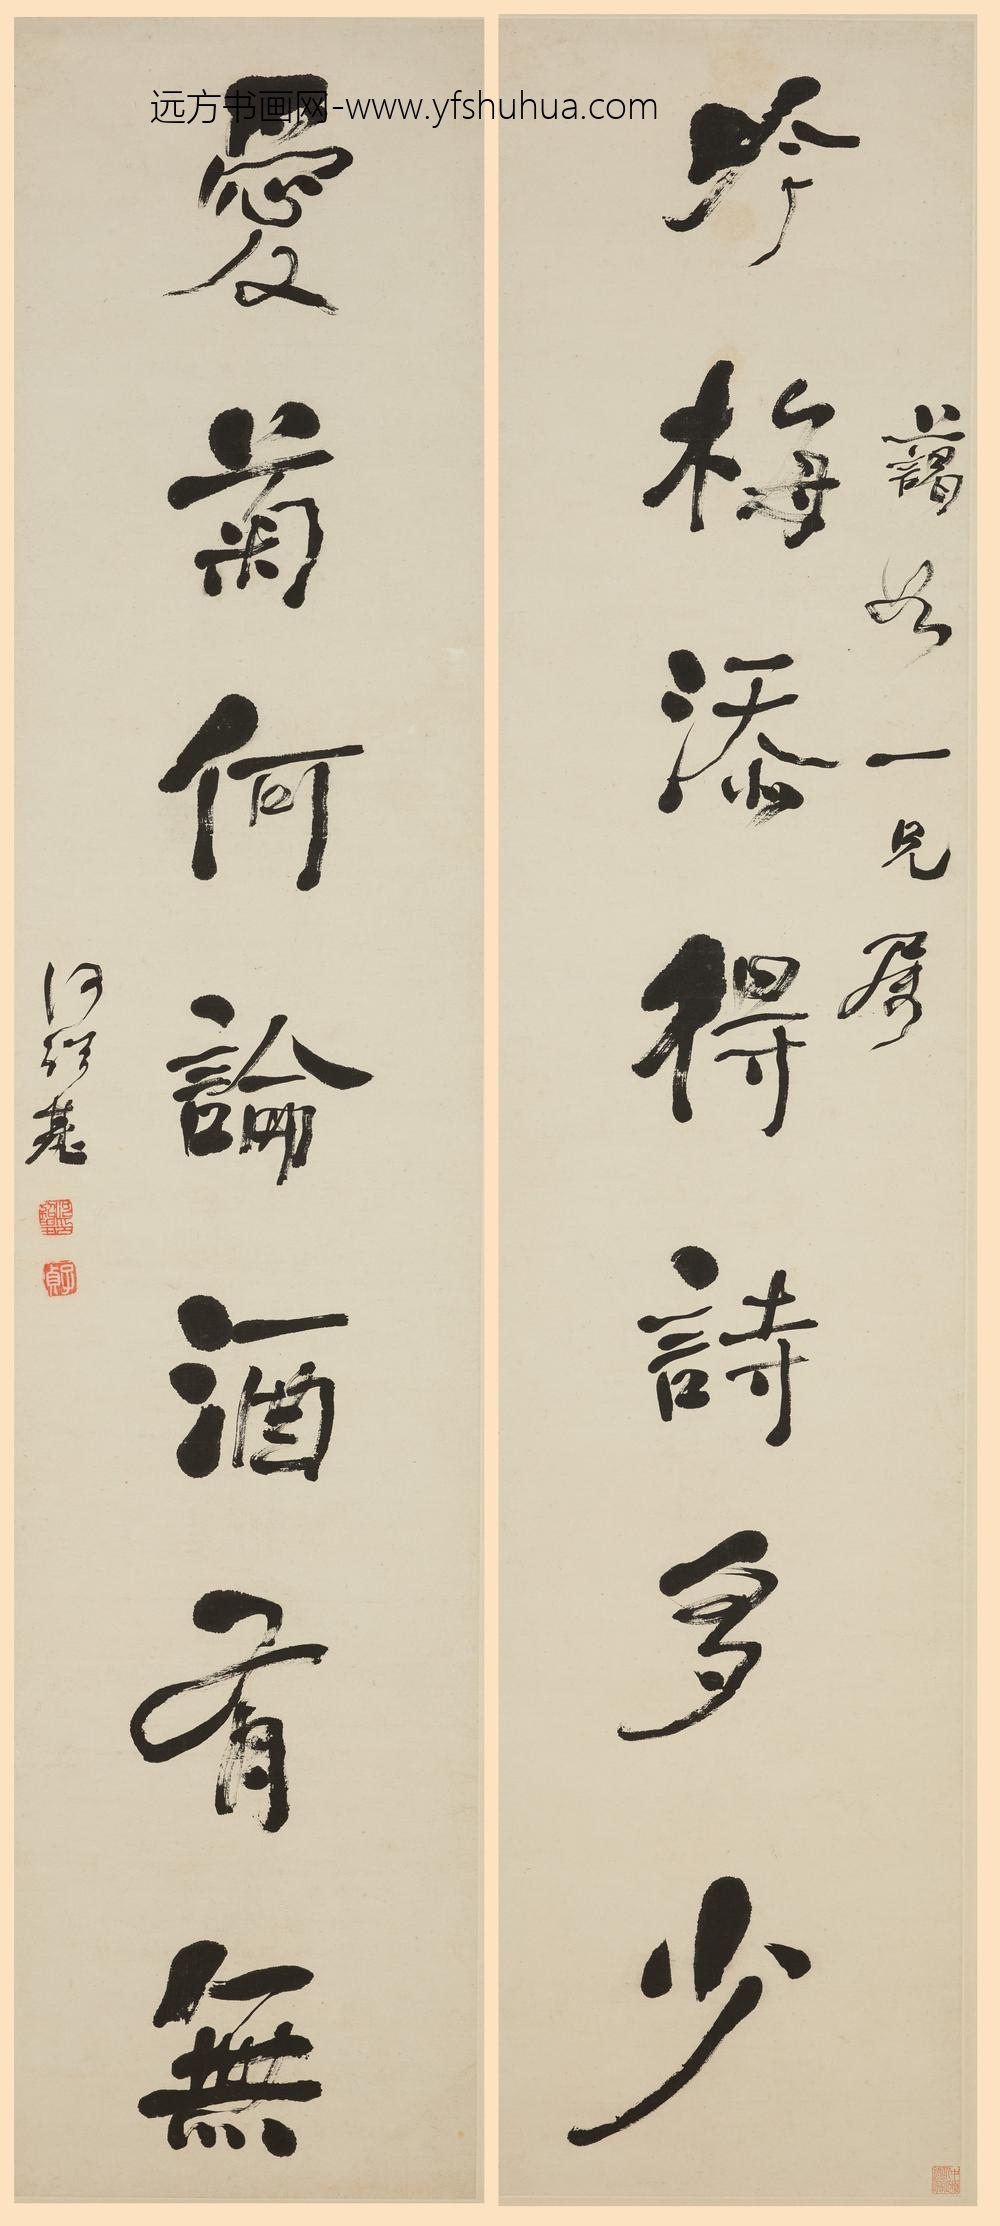 远方书画网-www.yfshuhua.com
吟梅添得詩多少
一兄屬
愛菊何論酒有無
何紹基
子貞